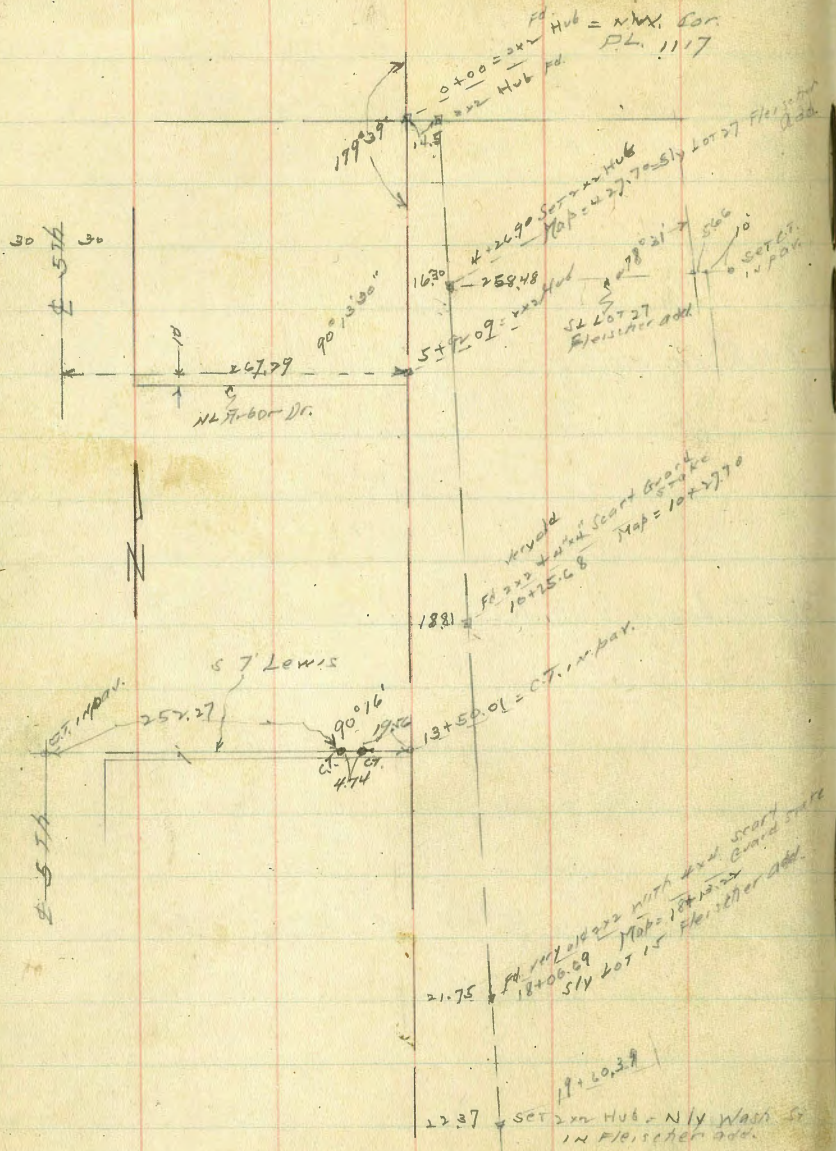 Fd. Hub = NW. Cor.
P.L. 1117
0+00 = 2x2
2x2 Hub Fd.
14.5
179° 39'
4+26.90 Set 2x2 Hub
Map = 4 27.70 = Sly LOT 27 Fleischer add.
30 ₵ 5th 30
16.30
258.48
78° 31'
5.66
10'
Set C.T. in pav.
SL LOT 27
Fleischer add.
90° 13' 30"
5+92.09 = 2x2 Hub
10'
267.29
NL Arbor Dr.
N
very old
Fd 2x2 + 4"x4" Scart Guard Stake
10+25.68 Map = 10+27.70
18.81
S 7 Lewis
C.T. in pav.
252.27
90° 16'
19.56
13+50.01 = C.T. in pav.
C.T. C.T.
4.74
₵ 5th
Fd. very old 2x2 with 4x4 scart Guard stake
18+06.69 Map = 18+13.22
Sly LOT 15 Fleischer add.
21.75
19+60.39
22.37 Set 2x2 Hub = Nly Wash St
IN Fleischer add.